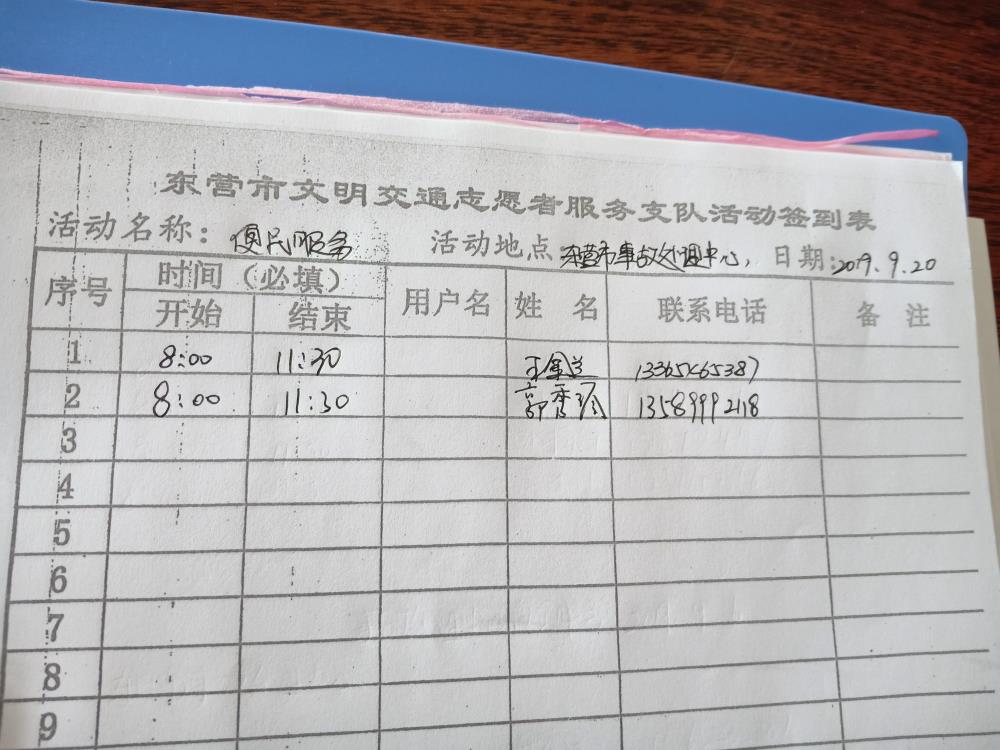 东营市文明交通志愿者服务支队活动签到表
活动名称：便民服务 活动地点 东营市事故处理中心， 日期：2019.9.20
序号 时间（必填） 用户名 姓 名 联系电话 备 注
开始 结束
1 8:00 11:30 王金兰 13365465387
2 8:00 11:30 郭秀玲 13589992118
3
4
5
6
7
8
9